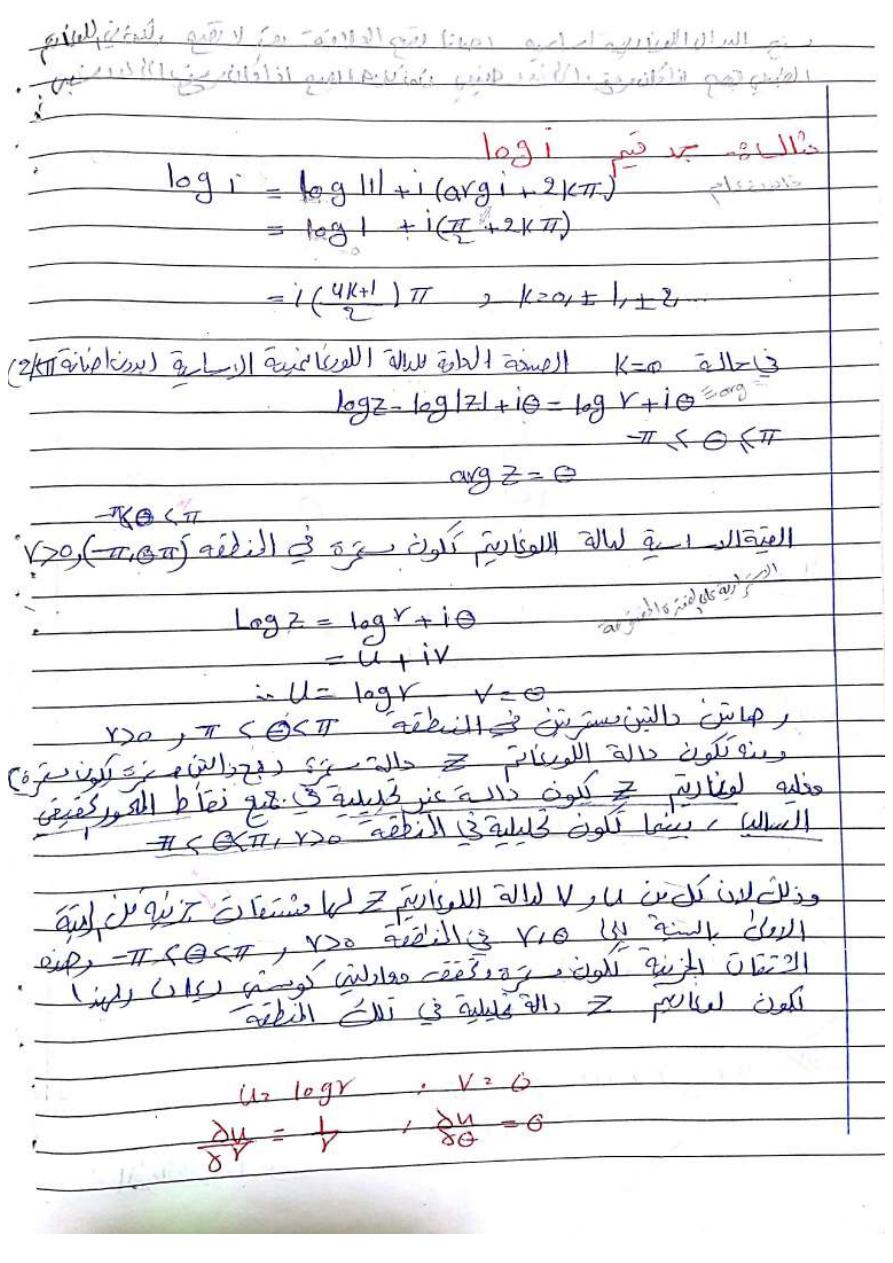 مثال:- جد قيم log i
log i = log |i| + i (arg i + 2kπ)
= log 1 + i(π/2 + 2kπ)
= i (4k+1/2) π , k=0, ±1, ±2, ...
في حالة k=0 الصيغة العامة للدالة اللوغاريتمية الاساسية (بدون اضافة 2kπ)
log z = log |z| + iθ = log r + iθ
-π < θ ≤ π
arg z = θ
-π<θ<π
القيمة الاساسية لدالة اللوغاريتم تكون مستمرة في المنطقة r>0, (-π,π)
Log z = log r + iθ
= u + iv
∴ u = log r v = θ
وهاتين دالتين مستمرتين في المنطقة π < θ < π , r>0
ومنه تكون دالة اللوغاريتم z دالة مستمرة
وعليه لوغاريتم z يكون دالة غير تحليلية في جميع نقاط المحور الحقيقي
السالب ، بينما تكون تحليلية في المنطقة -π < θ < π, r>0
وذلك لان كل من u و v لدالة اللوغاريتم z لها مشتقات جزئية من الرتبة
الاولى بالنسبة الى r, θ في المنطقة r>0 , -π < θ < π وهذه
المشتقات الجزئية تكون مستمرة وتحقق معادلتي كوشي ريمان ولهذا
تكون لوغاريتم z دالة تحليلية في تلك المنطقة
u = log r , v = θ
∂u/∂r = 1/r , ∂u/∂θ = 0